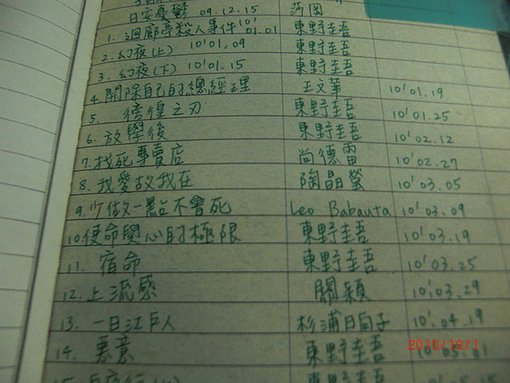 日安憂鬱 09.12.15 莎岡
1. 迴廊亭殺人事件 10'01.01 東野圭吾
2. 幻夜(上) 10'01.09 東野圭吾
3. 幻夜(下) 10'01.15 東野圭吾
4. 開除自己的總經理 王文華 10'01.19
5. 徬徨之刃 東野圭吾 10'01.25
6. 放學後 東野圭吾 10'02.12
7. 找死專賣店 尚德雷 10'02.27
8. 我愛故我在 陶晶瑩 10'03.05
9. 少做一點不會死 Leo Babauta 10'03.09
10. 使命與心的極限 東野圭吾 10'03.19
11. 宿命 東野圭吾 10'03.25
12. 上流感 關穎 10'03.29
13. 一日江戶人 杉浦日向子 10'.04.19
14. 惡意 東野圭吾
2010/10/1